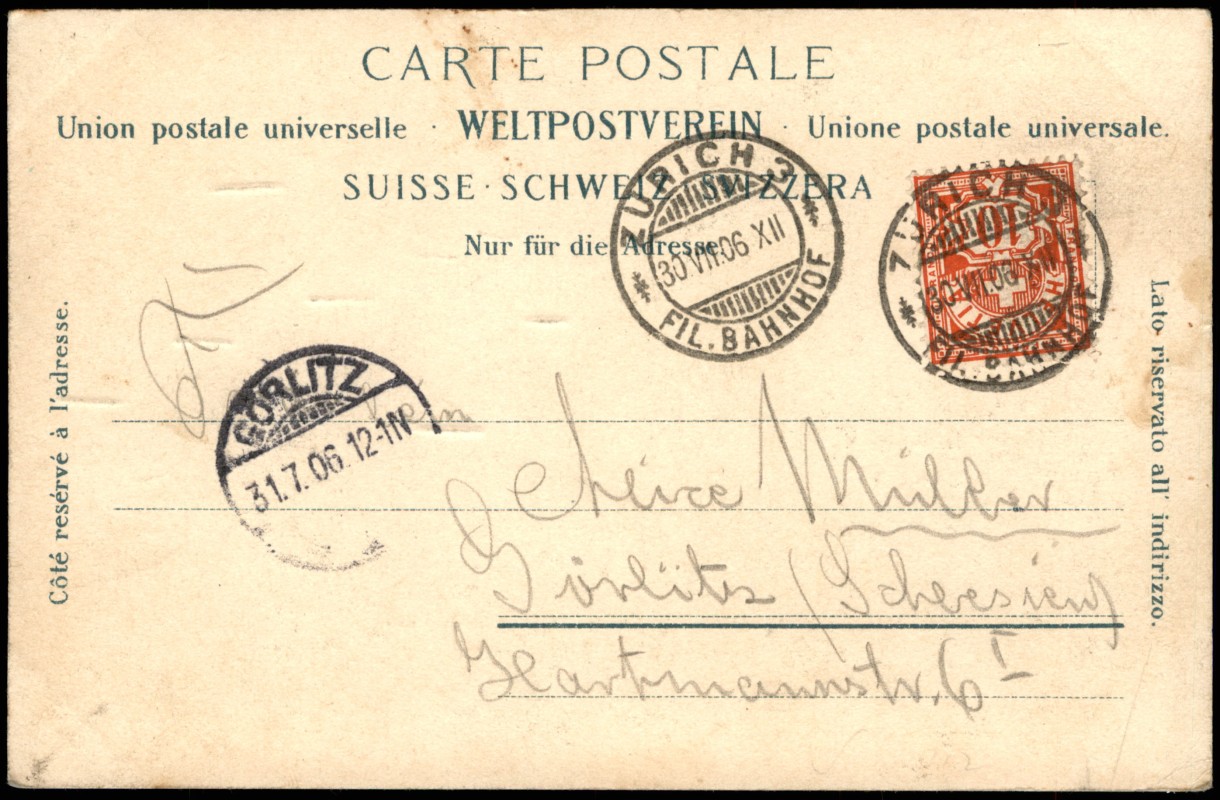 CARTE POSTALE
Union postale universelle · WELTPOSTVEREIN · Unione postale universale.
SUISSE · SCHWEIZ SVIZZERA
Nur für die Adresse.
Côté resérvé à l'adresse.
Lato riservato all' indirizzo.
ZÜRICH 3
30.VII.06 XII
FIL. BAHNHOF
10
ZÜRICH 3
30.VII.06 XII
FIL. BAHNHOF
GÖRLITZ
31.7.06.12-1N
Alice Müller
Görlitz (Schlesien)
Hartmannstr. 6 I